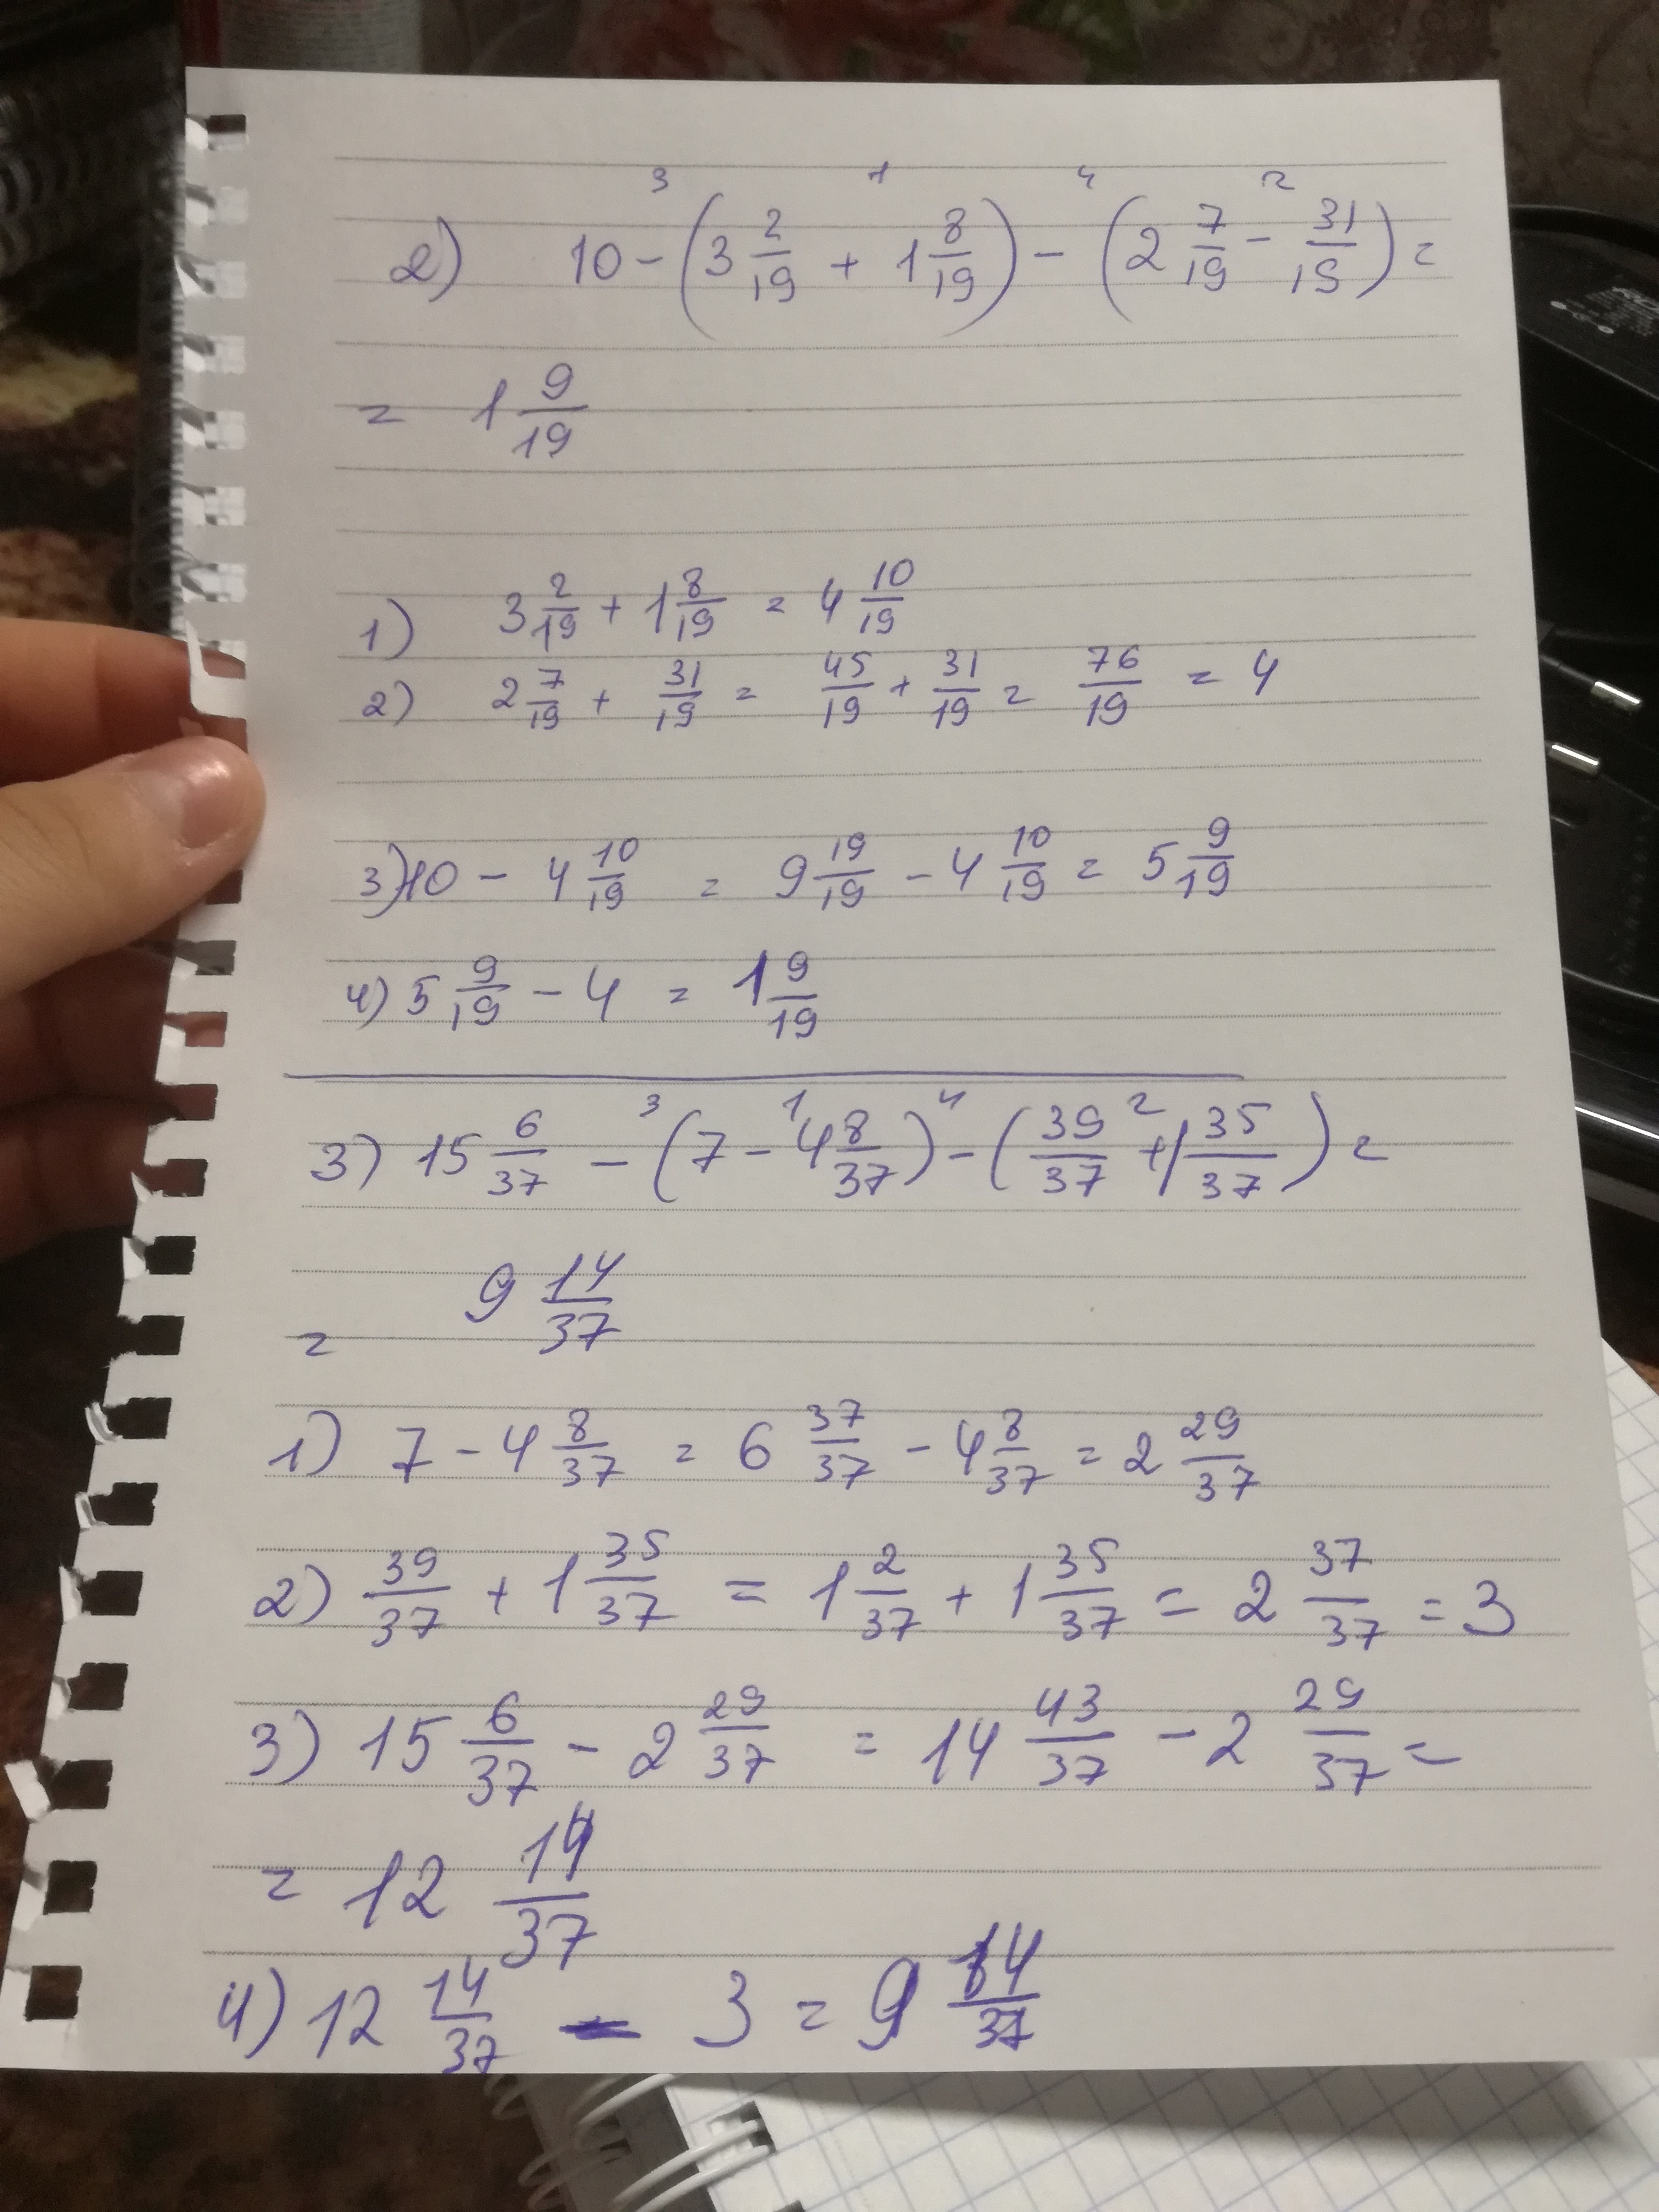 3 1 4 2
2) 10 - (3 2/19 + 1 8/19) - (2 7/19 - 31/19) =
= 1 9/19
1) 3 2/19 + 1 8/19 = 4 10/19
2) 2 7/19 + 31/19 = 45/19 + 31/19 = 76/19 = 4
3) 10 - 4 10/19 = 9 19/19 - 4 10/19 = 5 9/19
4) 5 9/19 - 4 = 1 9/19
3 1 4 2
3) 15 6/37 - (7 - 4 8/37) - (39/37 + 1 35/37) =
= 9 14/37
1) 7 - 4 8/37 = 6 37/37 - 4 8/37 = 2 29/37
2) 39/37 + 1 35/37 = 1 2/37 + 1 35/37 = 2 37/37 = 3
3) 15 6/37 - 2 29/37 = 14 43/37 - 2 29/37 =
= 12 14/37
4) 12 14/37 - 3 = 9 14/37